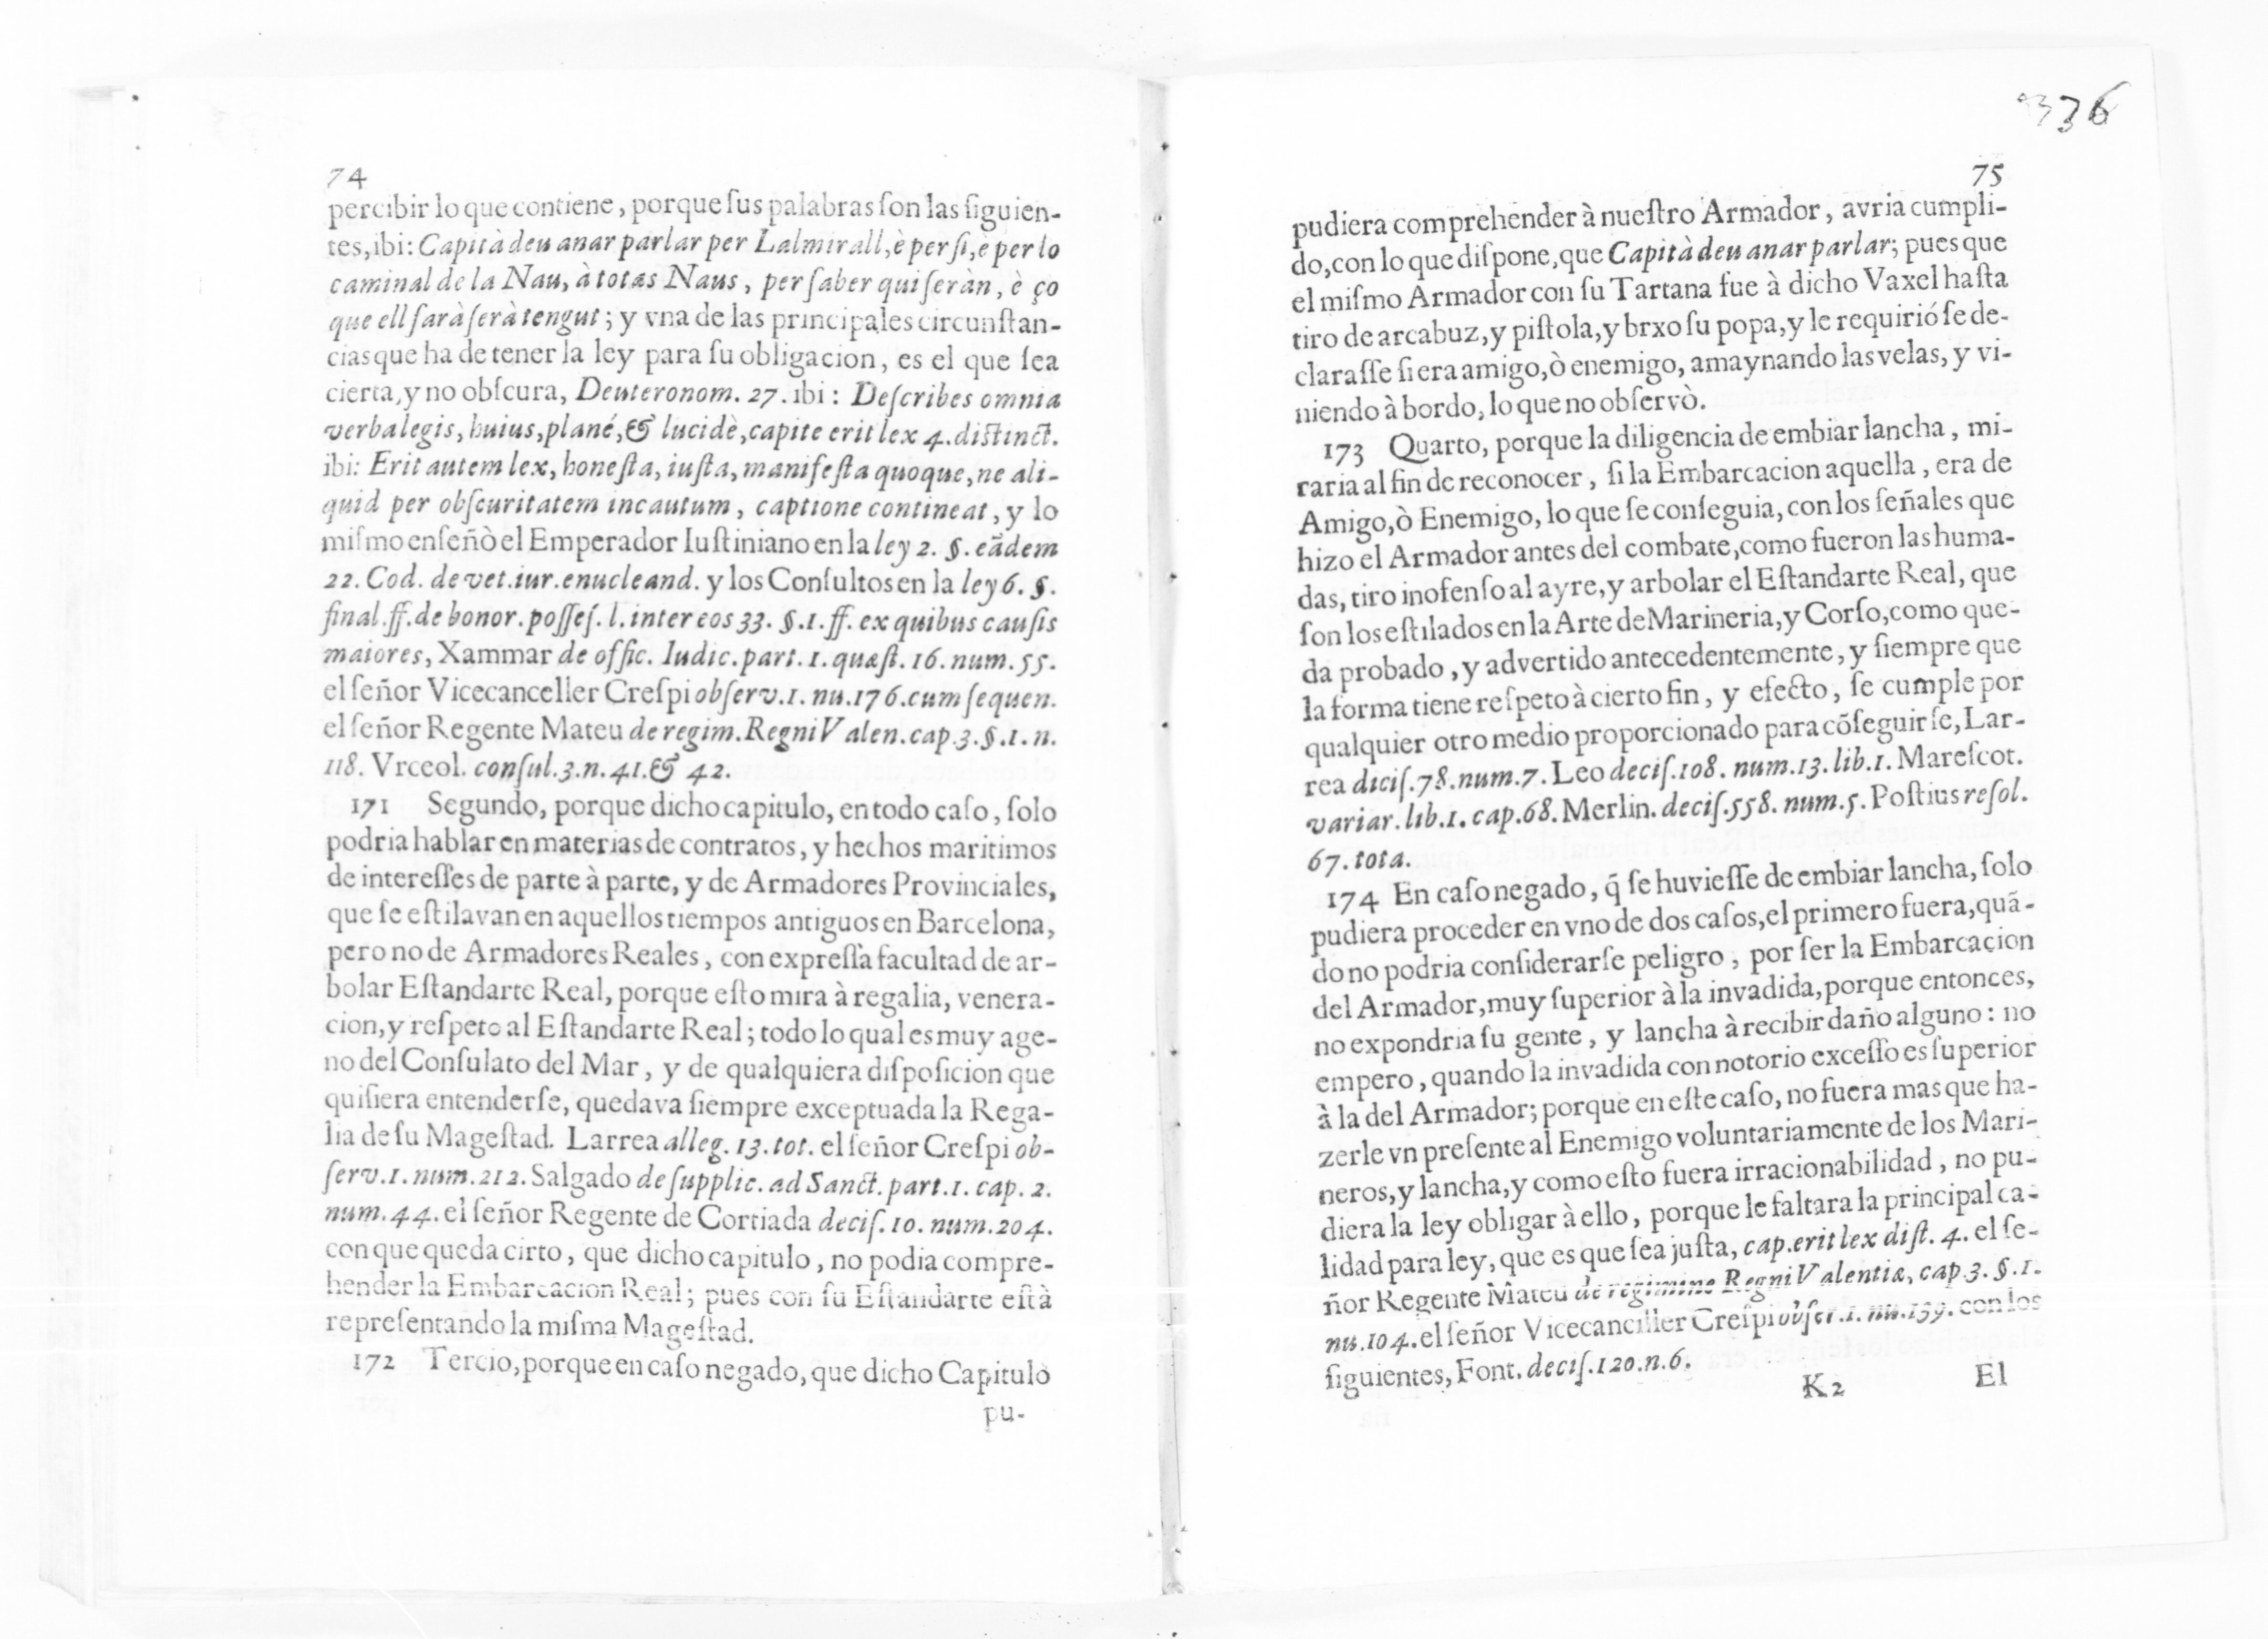 74
percibir lo que contiene, porque ſus palabras ſon las ſiguien-
tes, ibi: Capità deu anar parlar per Lalmirall, è per ſi, è per lo
caminal de la Nau, à totas Naus, per ſaber qui ſeràn, è ço
que ell farà ſerà tengut; y vna de las principales circunſtan-
cias que ha de tener la ley para ſu obligacion, es el que ſea
cierta, y no obſcura, Deuteronom. 27. ibi: Deſcribes omnia
verba legis, huius, plané, & lucidè, capite erit lex 4. diſtinct.
ibi: Erit autem lex, honeſta, iuſta, manifeſta quoque, ne ali-
quid per obſcuritatem incautum, captione contineat, y lo
miſmo enſeñò el Emperador Iuſtiniano en la ley 2. §. eãdem
22. Cod. de vet. iur. enucleand. y los Conſultos en la ley 6. §.
final. ff. de bonor. poſſeſ. l. inter eos 33. §. 1. ff. ex quibus cauſis
maiores, Xammar de offic. Iudic. part. 1. quæſt. 16. num. 55.
el ſeñor Vicecanceller Creſpi obſerv. 1. nu. 176. cum ſequen.
el ſeñor Regente Mateu de regim. Regni Valen. cap. 3. §. 1. n.
118. Vrceol. conſul. 3. n. 41. & 42.
171 Segundo, porque dicho capitulo, en todo caſo, ſolo
podria hablar en materias de contratos, y hechos maritimos
de intereſſes de parte à parte, y de Armadores Provinciales,
que ſe eſtilavan en aquellos tiempos antiguos en Barcelona,
pero no de Armadores Reales, con expreſſa facultad de ar-
bolar Eſtandarte Real, porque eſto mira à regalia, venera-
cion, y reſpeto al Eſtandarte Real; todo lo qual es muy age-
no del Conſulato del Mar, y de qualquiera diſpoſicion que
quiſiera entenderſe, quedava ſiempre exceptuada la Rega-
lia de ſu Mageſtad. Larrea alleg. 13. tot. el ſeñor Creſpi ob-
ſerv. 1. num. 212. Salgado de ſupplic. ad Sanct. part. 1. cap. 2.
num. 44. el ſeñor Regente de Cortiada deciſ. 10. num. 204.
con que queda cirto, que dicho capitulo, no podia compre-
hender la Embarcacion Real; pues con ſu Eſtandarte eſtà
repreſentando la miſma Mageſtad.
172 Tercio, porque en caſo negado, que dicho Capitulo
pu-
336
75
pudiera comprehender à nueſtro Armador, avria cumpli-
do, con lo que diſpone, que Capità deu anar parlar; pues que
el miſmo Armador con ſu Tartana fue à dicho Vaxel haſta
tiro de arcabuz, y piſtola, y brxo ſu popa, y le requirió ſe de-
claraſſe ſi era amigo, ò enemigo, amaynando las velas, y vi-
niendo à bordo, lo que no obſervò.
173 Quarto, porque la diligencia de embiar lancha, mi-
raria al fin de reconocer, ſi la Embarcacion aquella, era de
Amigo, ò Enemigo, lo que ſe conſeguia, con los ſeñales que
hizo el Armador antes del combate, como fueron las huma-
das, tiro inofenſo al ayre, y arbolar el Eſtandarte Real, que
ſon los eſtilados en la Arte de Marineria, y Corſo, como que-
da probado, y advertido antecedentemente, y ſiempre que
la forma tiene reſpeto à cierto fin, y efecto, ſe cumple por
qualquier otro medio proporcionado para cõſeguirſe, Lar-
rea diciſ. 78. num. 7. Leo deciſ. 108. num. 13. lib. 1. Mareſcot.
variar. lib. 1. cap. 68. Merlin. deciſ. 558. num. 5. Poſtius reſol.
67. tota.
174 En caſo negado, q̃ ſe huvieſſe de embiar lancha, ſolo
pudiera proceder en vno de dos caſos, el primero fuera, quã-
do no podria conſiderarſe peligro, por ſer la Embarcacion
del Armador, muy ſuperior à la invadida, porque entonces,
no expondria ſu gente, y lancha à recibir daño alguno: no
empero, quando la invadida con notorio exceſſo es ſuperior
à la del Armador; porque en eſte caſo, no fuera mas que ha-
zerle vn preſente al Enemigo voluntariamente de los Mari-
neros, y lancha, y como eſto fuera irracionabilidad, no pu-
diera la ley obligar à ello, porque le faltara la principal ca-
lidad para ley, que es que ſea juſta, cap. erit lex diſt. 4. el ſe-
ñor Regente Mateu de regimine Regni Valentiæ, cap. 3. §. 1.
nu. 104. el ſeñor Vicecanciller Creſpi obſer. 1. nu. 159. con los
ſiguientes, Font. deciſ. 120. n. 6.
K2 El